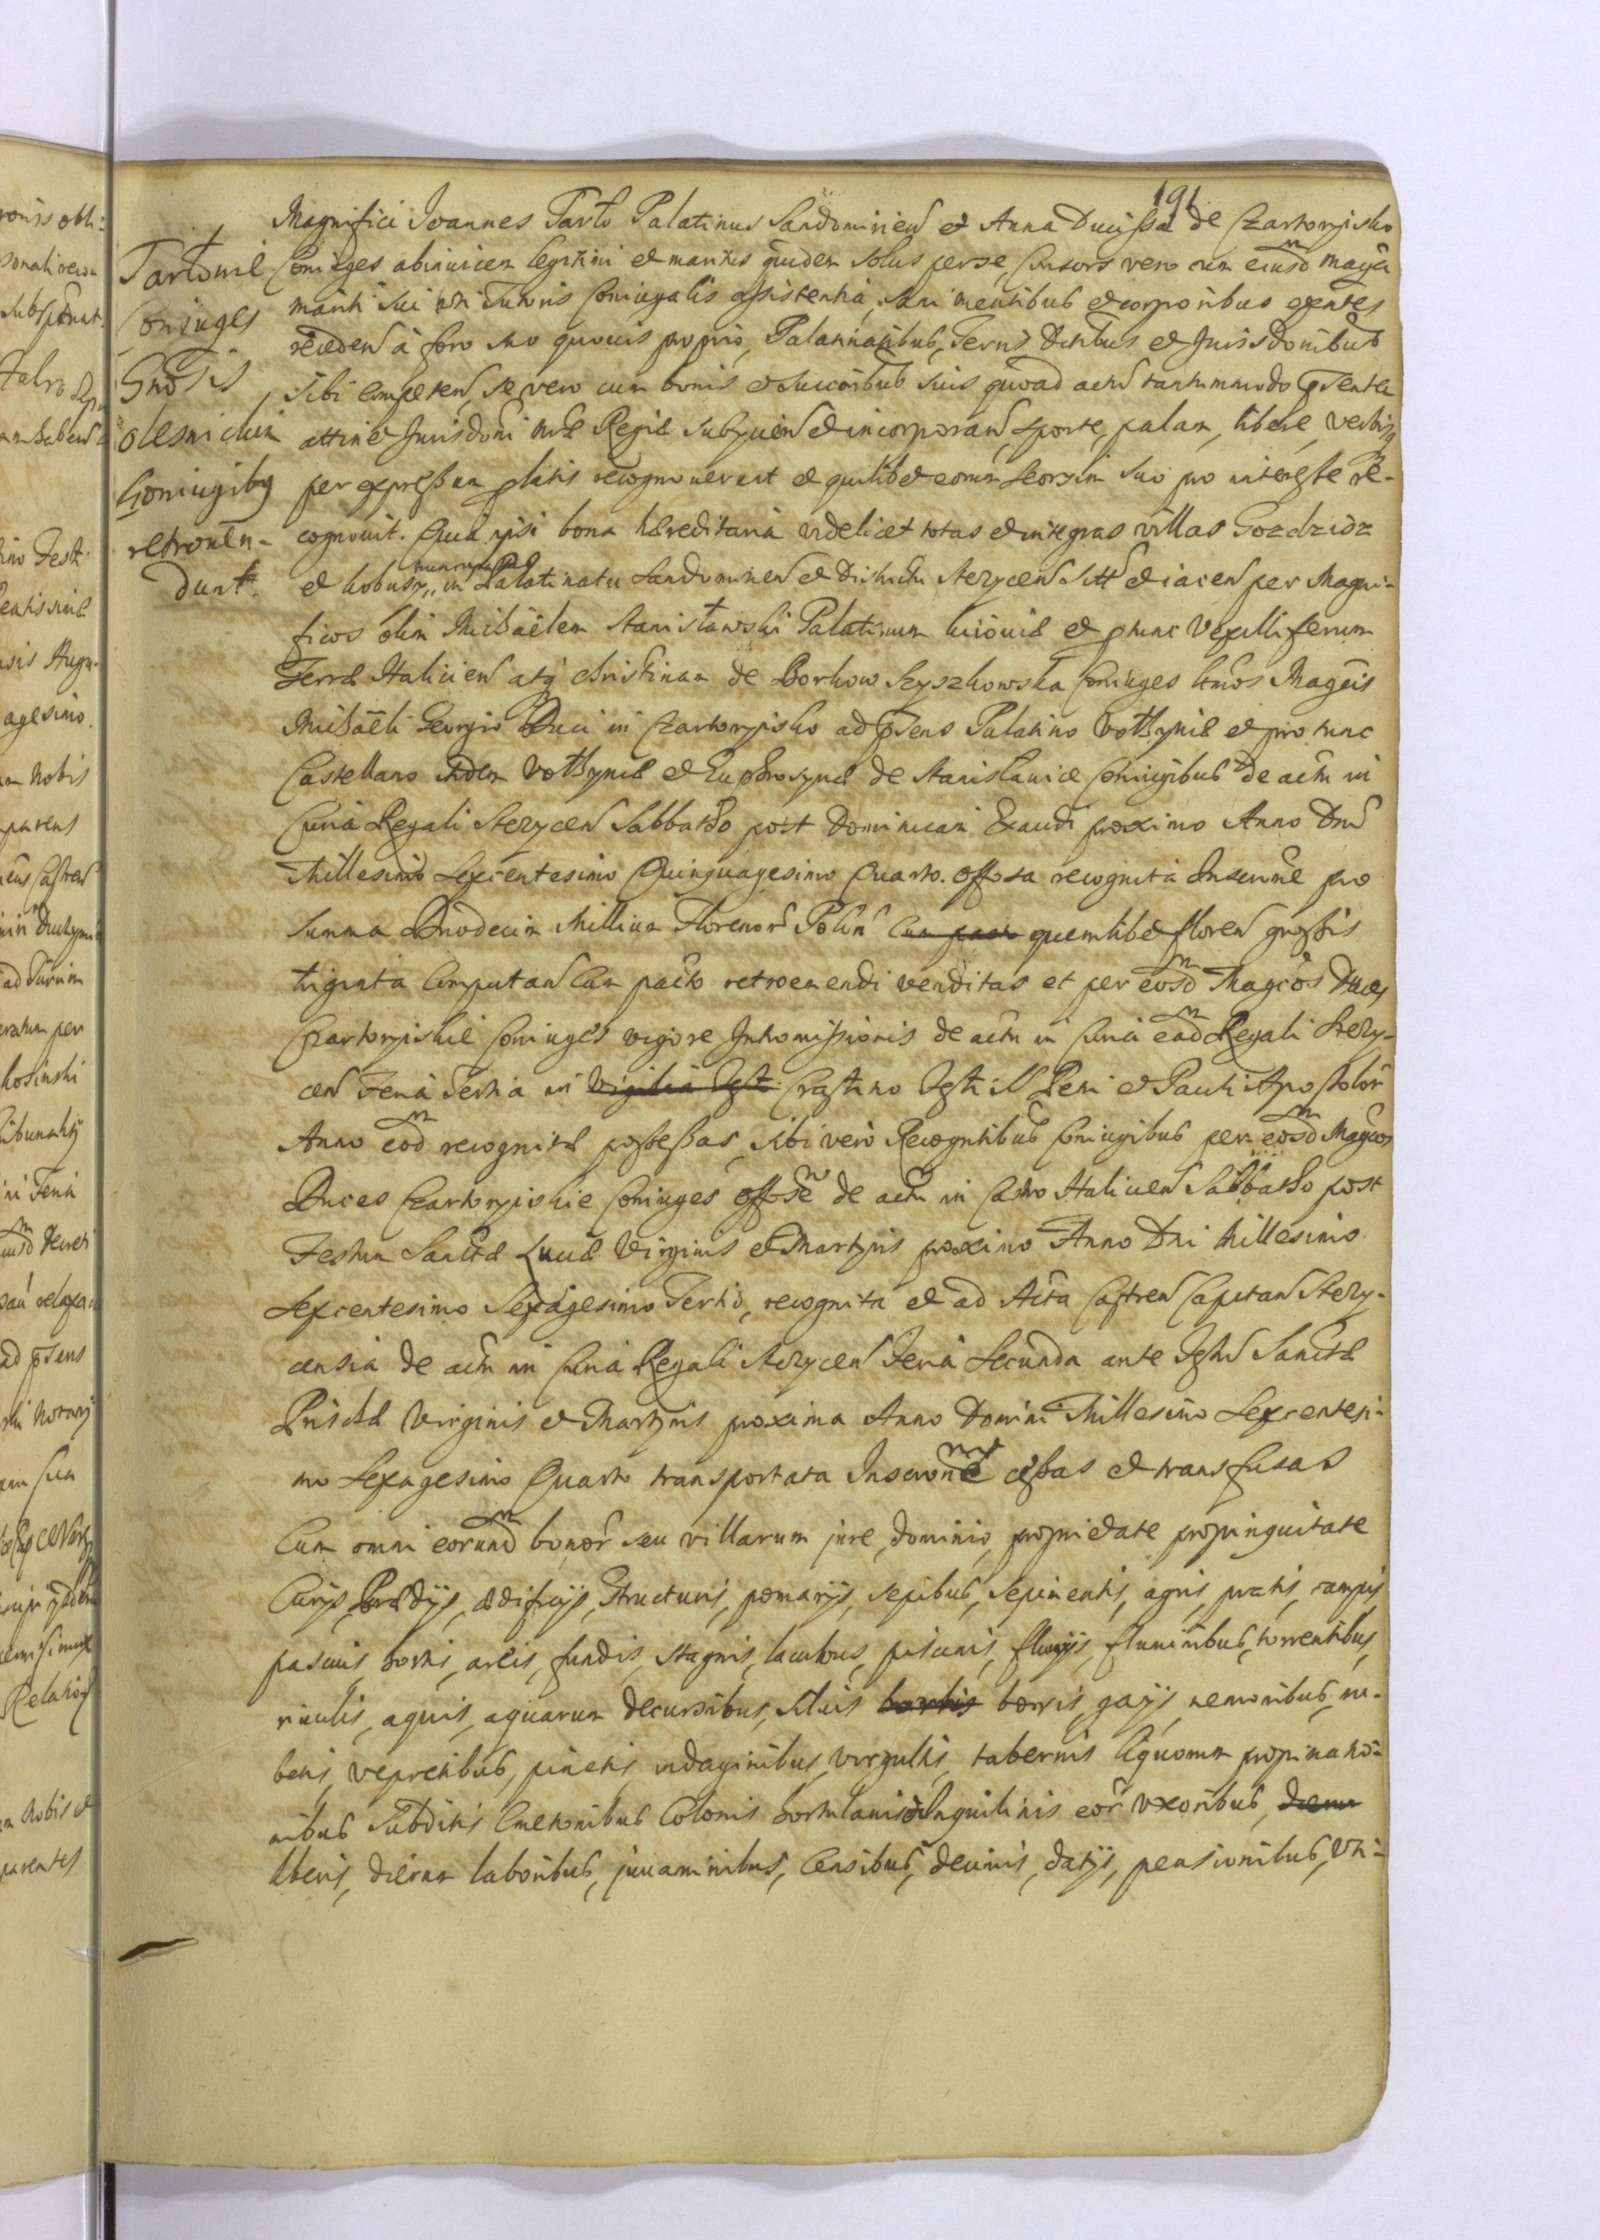 191
Tarłowie
Coniuges
Gnosis
olesnickim
Coniugiby
retroven-
dunt.
Magnifici Joannes Tarło Palatinus Sandomirien et Anna Ducissa de Czartoryisko
Coniuges abinuicem legitimi et maritus quidem solus per se, Consors vero cum eiusd magci
mariti sui uti Tutoris Coniugalis assistentia, sani mentibus et corporibus existentes
receden a foro suo quouis proprio, Palatinatibus, Terris Distribus et Jurisdonibus
sibi competen, se vero cum bonis et successoribus suis quoad actum tantummodo psentem
attinet Jurisdoni nrae Regiae subijcien et incorporan, sponte, palam, libere, verbisq
per expressum platis recognouerunt et quilibet eorum seorsim suo pro interesse re-
cognouit. Quia ipsi bona haereditaria videlicet totas et integras villas Gozdzidz
et Kobusy, in Palatinatu Sandomirien et Districtu Stezycen sitt et iacen per Magni-
ficos olim Michaelem Stanisławski Palatinum Kiiouiae et ptunc Vexilliferum
Terrae Halicien atq Christinam de Borkow Szyszkowska Coniuges Imos Magcis
Michaeli Georgio Duci in Czartoryisko ad psens Palatino Vołhyniae et pro tunc
Castellano itidem Vołhyniae et Euphrosynae de Stanislawice Coniugibus de actu in
Curia Regali Stezycen Sabbatho post Dominicam Exaudi proximo Anno Dni
Millesimo Sexcentesimo Quinquagesimo Quarto. offosa recognita Inscrone pro
summa Duodecim Millium Florenor Polon quemlibet floren grossis
triginta Computan Cum pacto retroemendi venditas et per eosd Magcos Duces
Czartoryiskie Coniuges vigore Intromissionis de actu in Curia ead Regali Stezy-
cen Feria Tertia in Vigilia festi Crastino festi SS Petri et Pauli Apostolor
Anno eod recognitae possessas, sibi vero Recogntibus Coniugibus per eosd Magcos
Duces Czartoryiskie Coniuges offose de actu in Castro Halicien Sabbatho post
Festum Sanctae Luciae Virginis et Martyris proximo Anno Dni Millesimo
Sexcentesimo Sexagesimo Tertio, recognita et ad Acta Castren Capitan Stezy-
censia de actu in Curia Regali Stezycen Feria Secunda ante Festu Sanctae
Priscae Virginis et Martyris proxima Anno Domini Millesimo Sexcentesi-
mo Sexagesimo Quarto transportata Inscrone cessas et transfusas
Cum omni eorund bonor seu villarum jure, dominio, proprietate propinquitate
Curys, Praedijs, aedificijs, Structuris, pomarijs, sepibus, sepimentis, agris, pratis, campis
pascuis hortis, areis, fundis, stagnis, lacubus, piscinis, fluuijs, fluminibus, torrentibus,
riuulis, aquis, aquarum decursibus, siluis borris, gays, nemoribus, ru-
betis, vepretibus, pinetis, indaginibus, virgultis, tabernis liquorum propinatio-
nibus Subditis Cmetonibus Colonis hortulanis Inquilinis eor Vxoribus,
liberis, dierum laboribus, juuaminibus, Censibus, decimis, datijs, pensionibus, Vti-